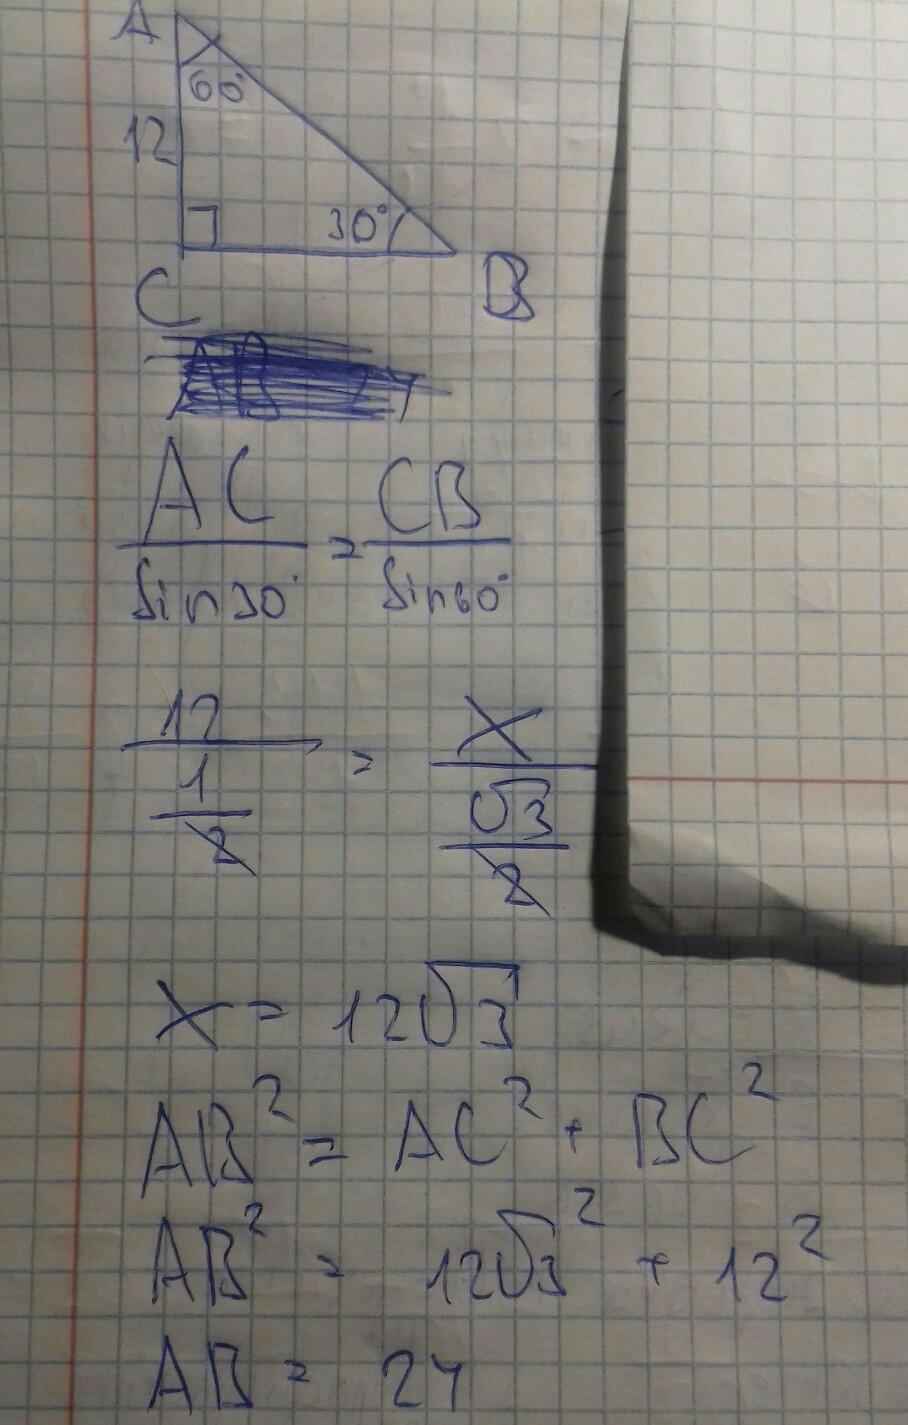 A
60°
12
30°
C B
AC/sin30° = CB/sin60°
12/(1/2) = X/(√3/2)
X = 12√3
AB² = AC² + BC²
AB² = 12√3² + 12²
AB = 24